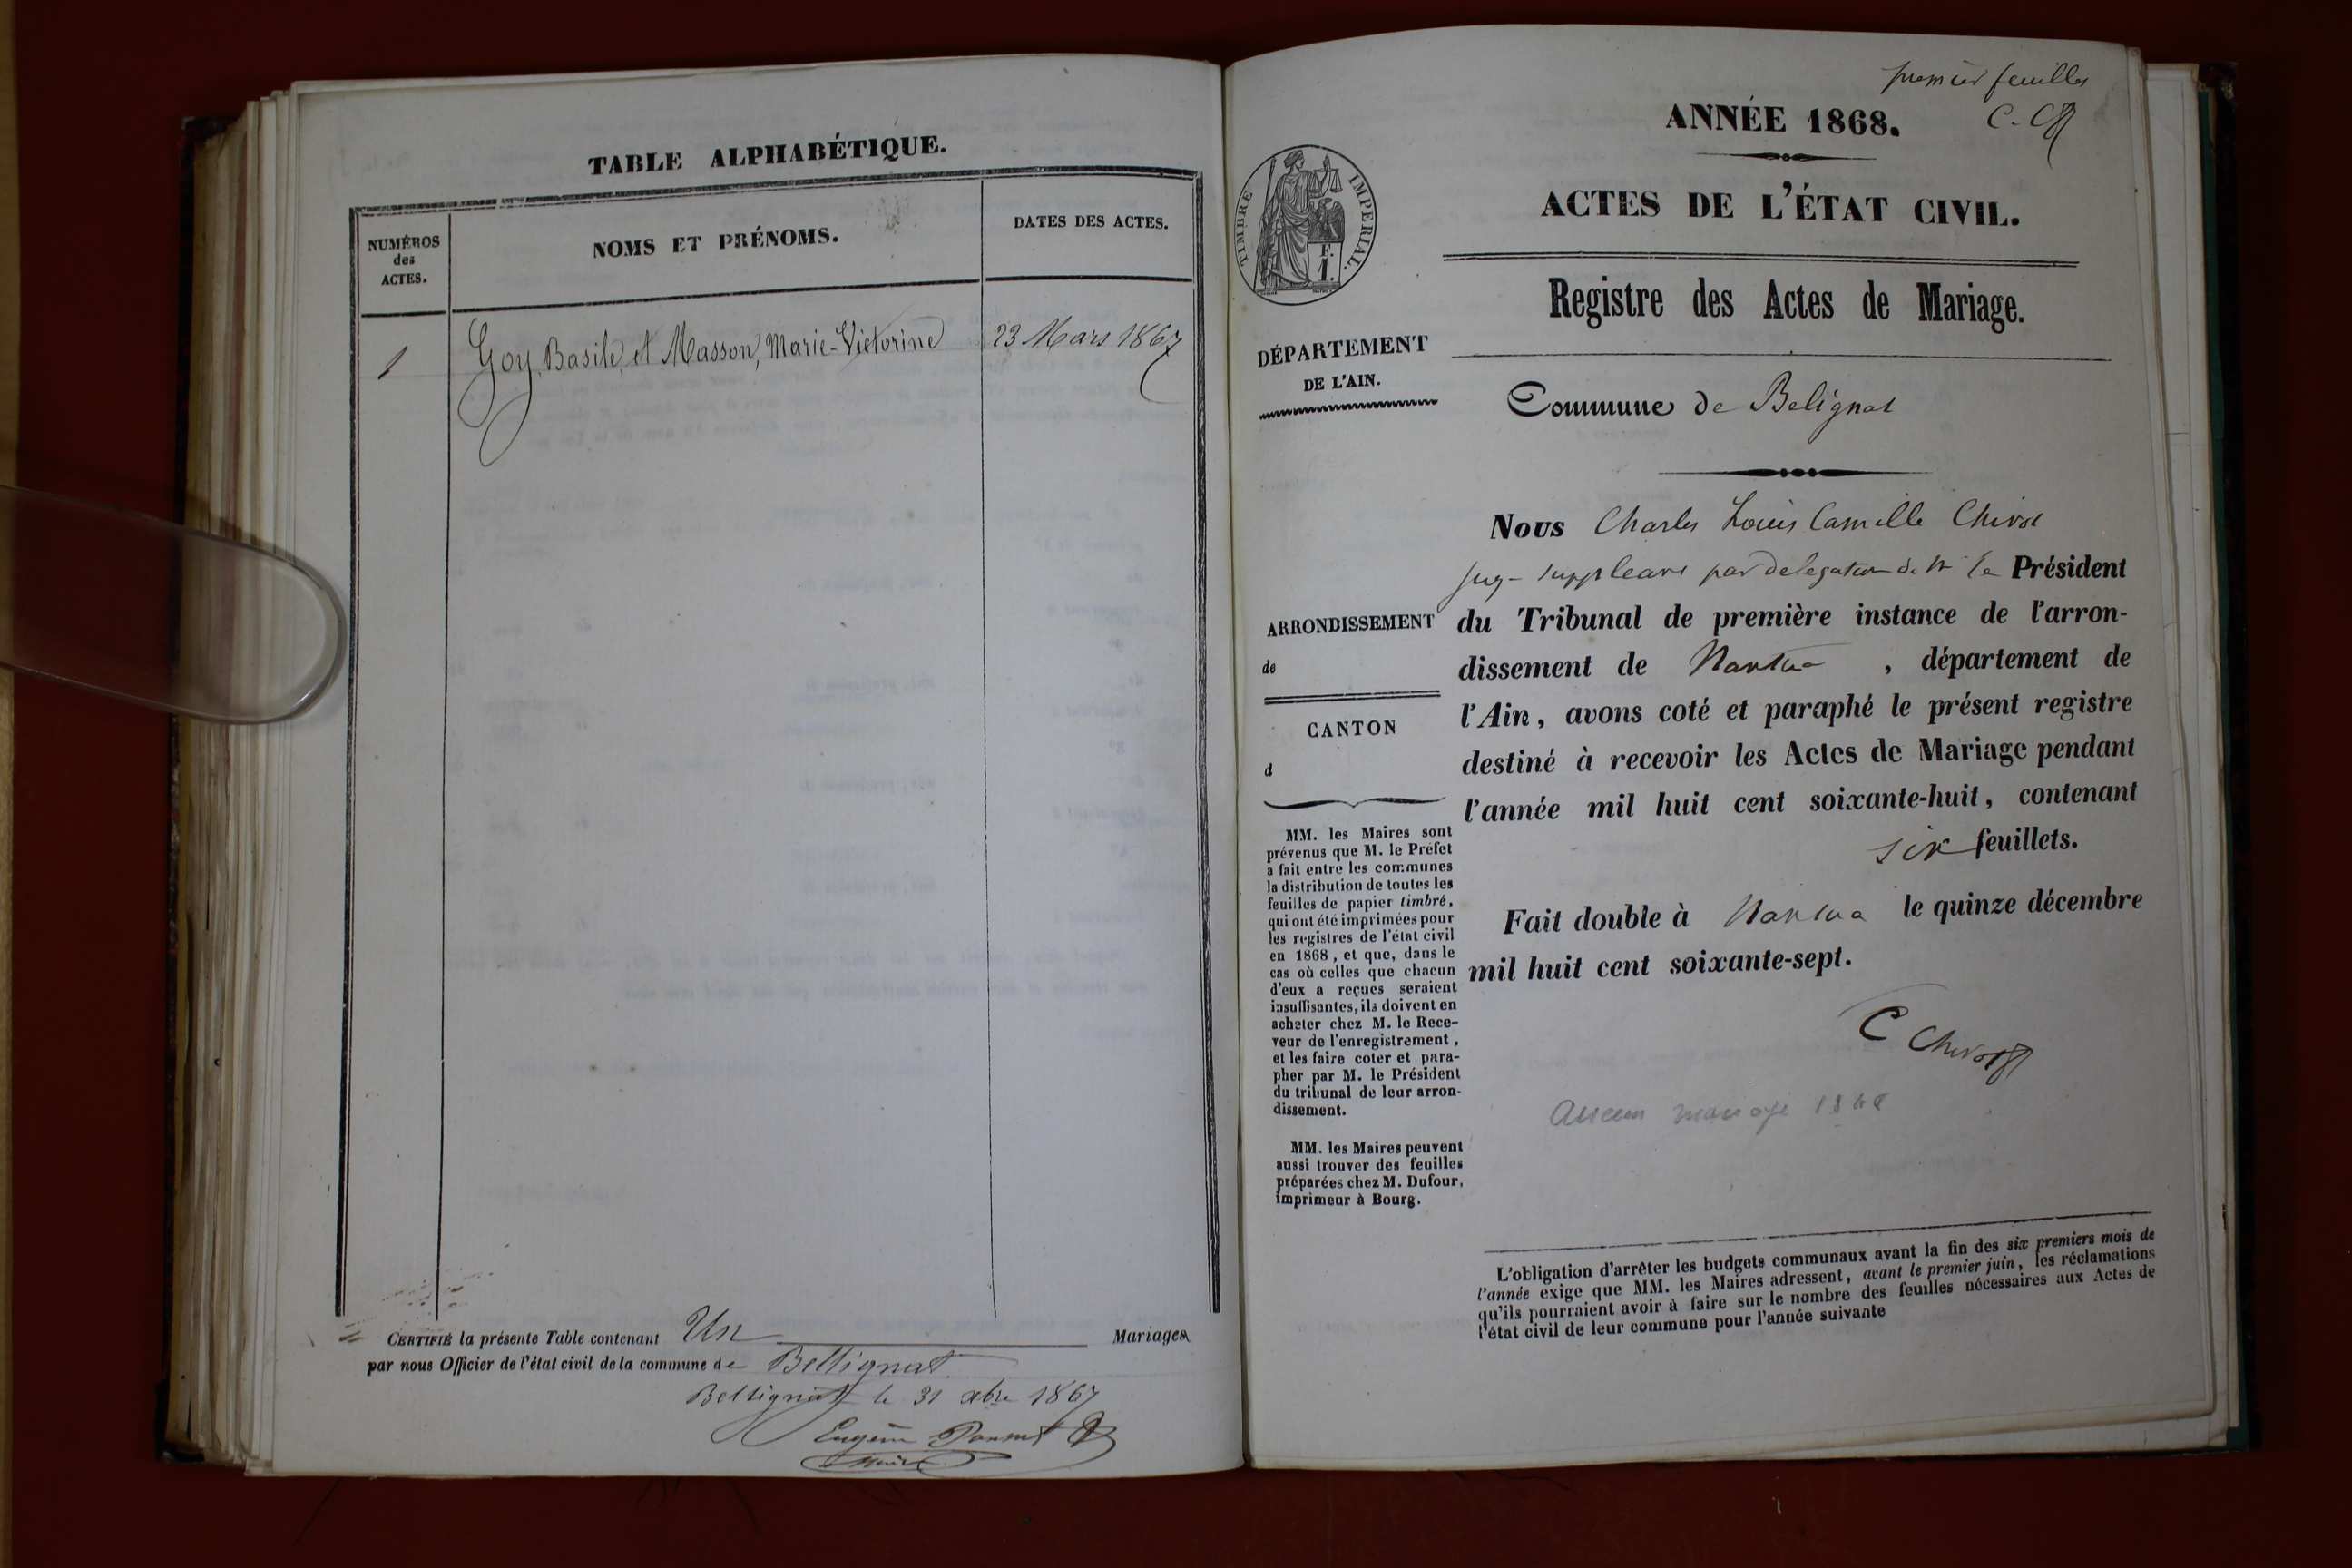 TABLE ALPHABÉTIQUE.
NUMÉROS
des
ACTES.
NOMS ET PRÉNOMS.
DATES DES ACTES.
1
Goy, Basile, et Masson, Marie-Victorine
23 Mars 1867
CERTIFIÉ la présente Table contenant Un Mariages
par nous Officier de l'état civil de la commune de Bellignat.
Bellignat le 31 xbre 1867
Eugène
Maire
premier feuillet
C. Ch
ANNÉE 1868.
ACTES DE L'ÉTAT CIVIL.
TIMBRE IMPERIAL.
F.
1.
Registre des Actes de Mariage.
DÉPARTEMENT
DE L'AIN.
Commune de Belignat
Nous Charles Louis Camille Chivot
juge suppleant par delegation de Mr le Président
du Tribunal de première instance de l'arron-
dissement de Nantua , département de
l'Ain, avons coté et paraphé le présent registre
destiné à recevoir les Actes de Mariage pendant
l'année mil huit cent soixante-huit, contenant
six feuillets.
Fait double à Nantua le quinze décembre
mil huit cent soixante-sept.
C Chivot
Aucun mariage 1868
ARRONDISSEMENT
de
CANTON
d
MM. les Maires sont
prévenus que M. le Préfet
a fait entre les communes
la distribution de toutes les
feuilles de papier timbré,
qui ont été imprimées pour
les registres de l'état civil
en 1868, et que, dans le
cas où celles que chacun
d'eux a reçues seraient
insuffisantes, ils doivent en
acheter chez M. le Rece-
veur de l'enregistrement,
et les faire coter et para-
pher par M. le Président
du tribunal de leur arron-
dissement.
MM. les Maires peuvent
aussi trouver des feuilles
préparées chez M. Dufour,
imprimeur à Bourg.
L'obligation d'arrêter les budgets communaux avant la fin des six premiers mois de
l'année exige que MM. les Maires adressent, avant le premier juin, les réclamations
qu'ils pourraient avoir à faire sur le nombre des feuilles nécessaires aux Actes de
l'état civil de leur commune pour l'année suivante